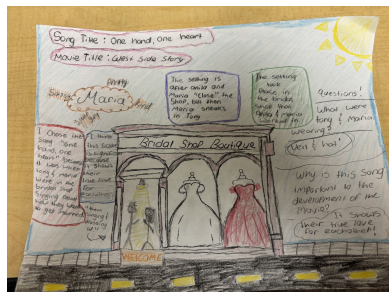 Song Title: One hand, one heart
Movie Title: West Side Story
pretty
Maria
kind
The setting is
after anita and
Maria "close" the
shop, but then
Maria sneaks
in Tony
The setting
took
place in
the bridal
shop that
Anita & Maria
worked in
questions!
What were
tony & Maria
wearing?
Veil & hat!
Why is this song
important to the
development of the
Movie?
It shows
their true love
for eachother!
I chose the
song "one
hand, one
heart" because
it was when
tony & maria
were in the
bridal shop
singing about
how they
got married
I think
this
because
it shows
their
love
for
eachother
Bridal Shop Boutique
WELCOME